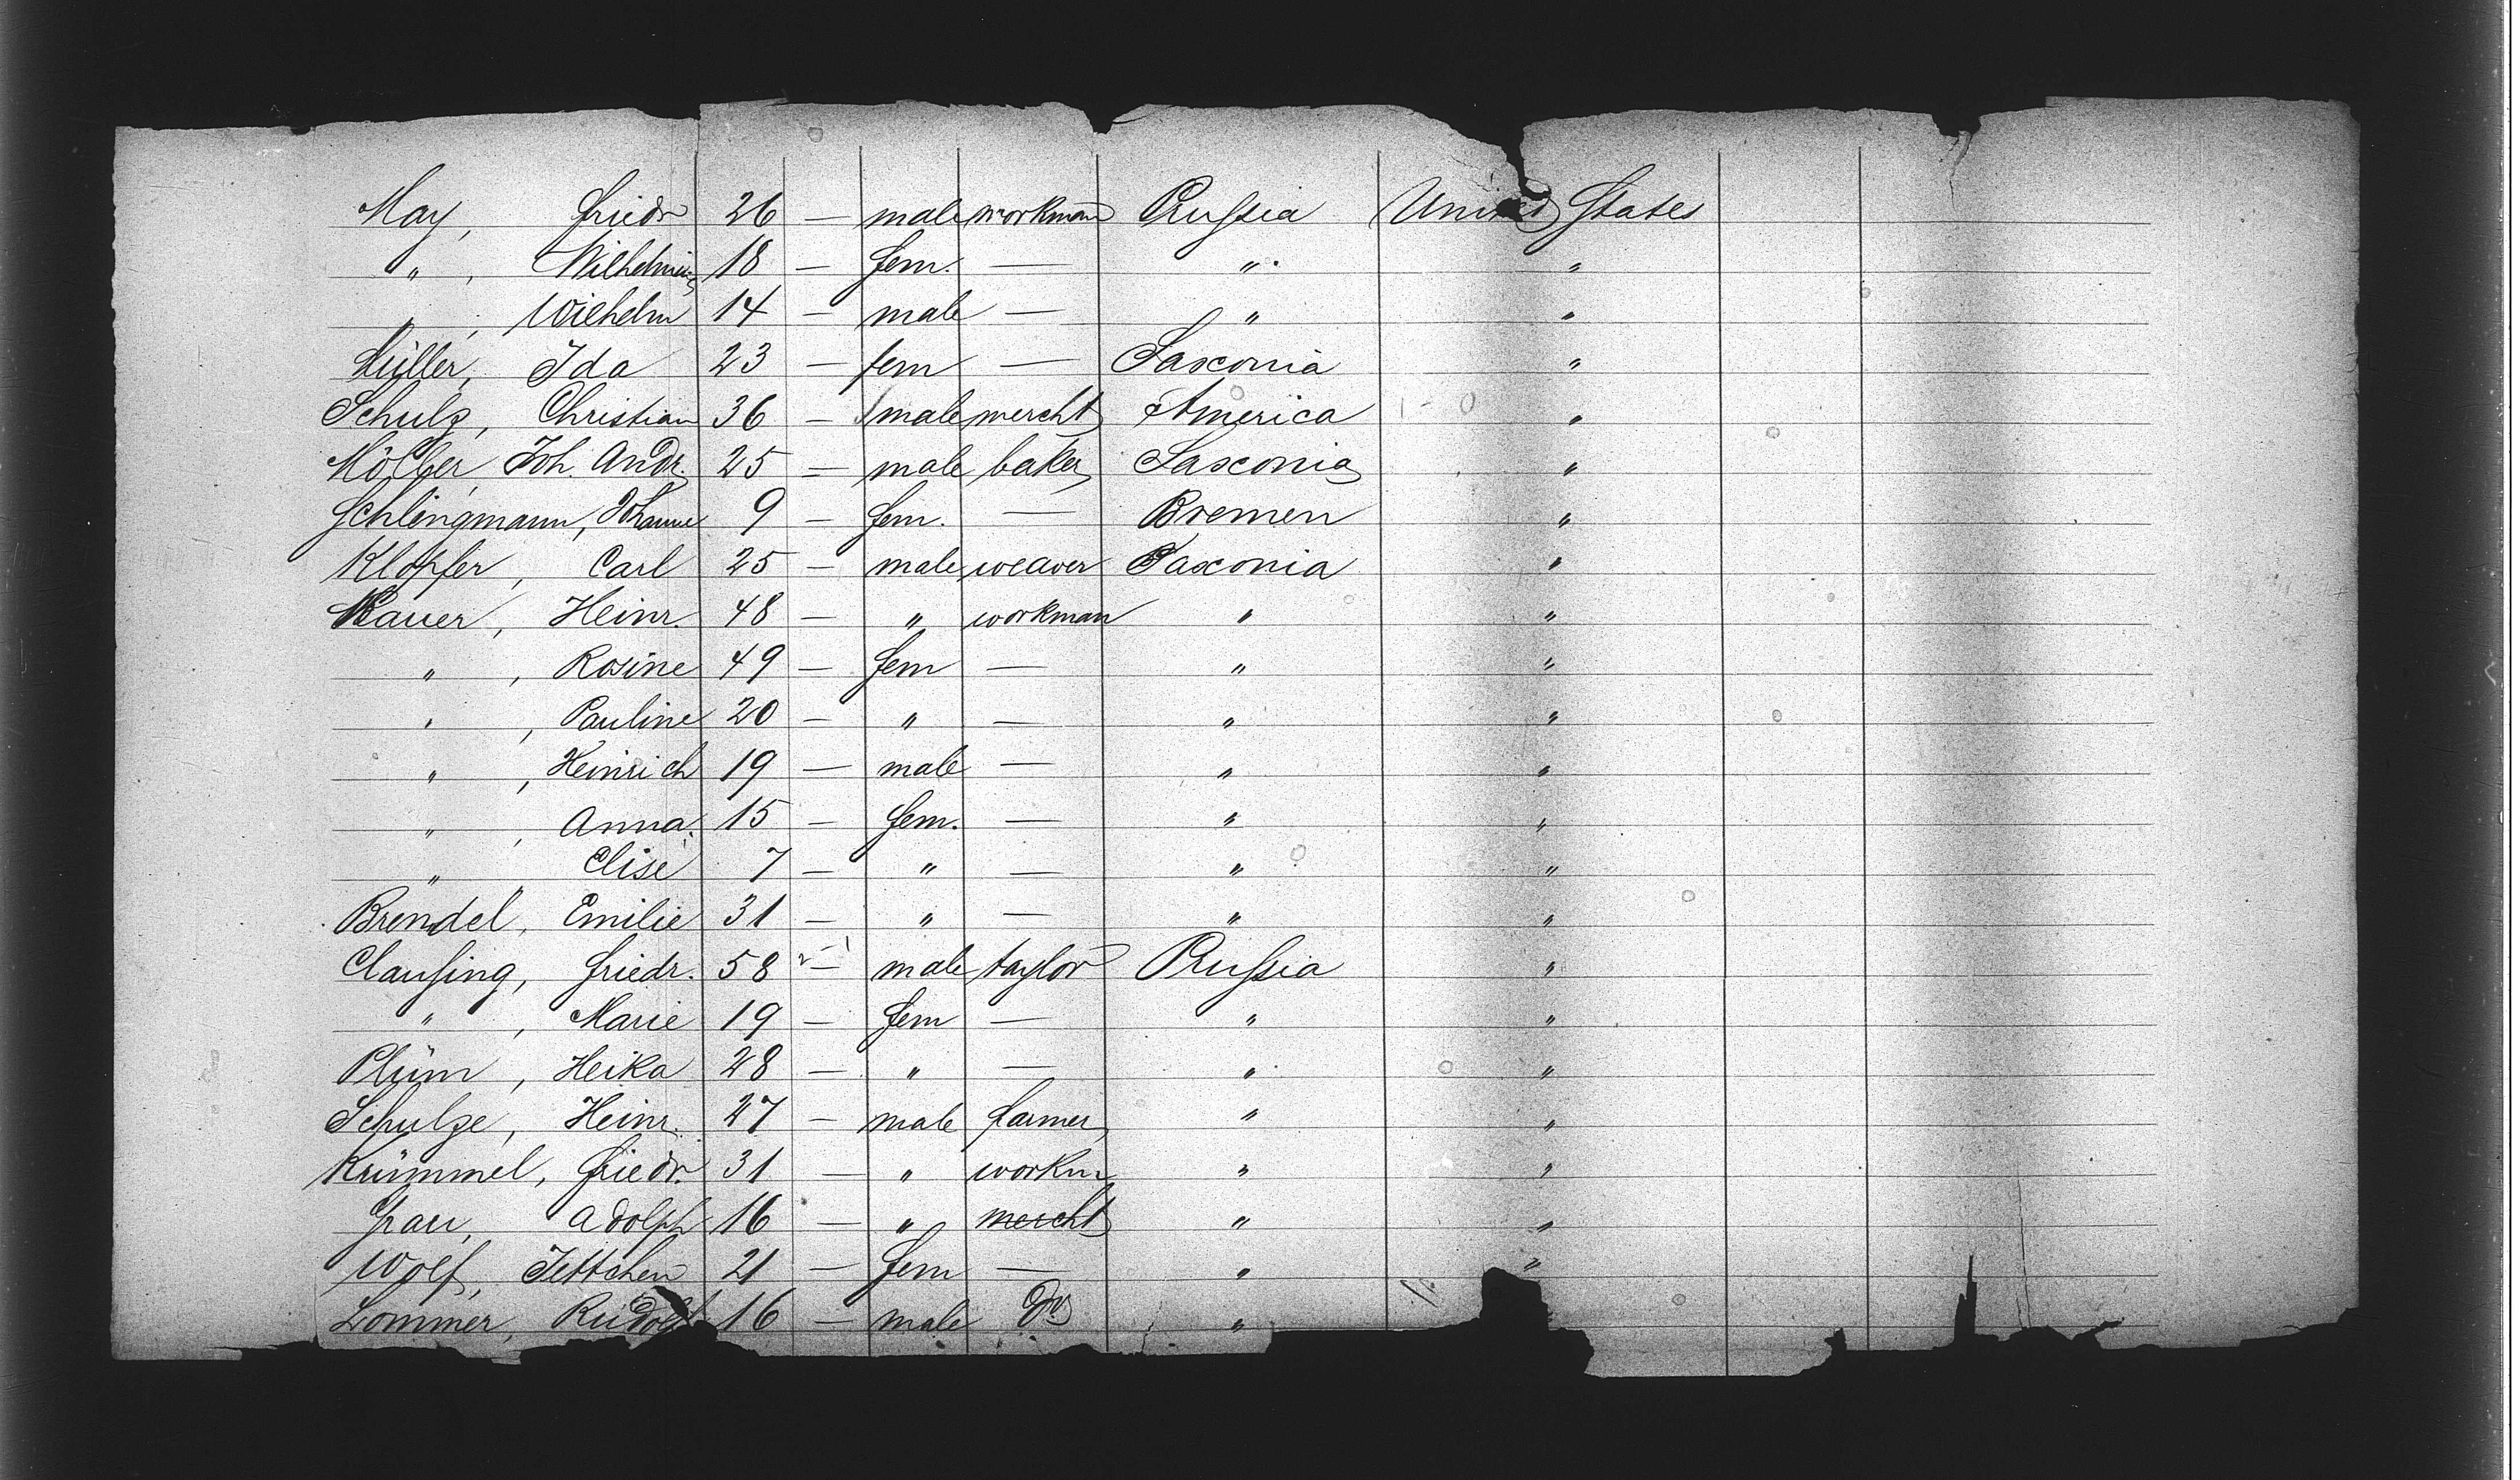 May, Friedr 26 — male workman Prussia United States
" , Wilhelmine 18 — fem. — " "
" , Wilhelm 14 — male — " "
Müller, Ida 23 — fem — Saxonia "
Schulz, Christian 36 — male mercht America "
Möller, Joh. Andr. 25 — male baker Saxonia "
Schlingmann, Johanne 9 — fem. — Bremen "
Klopfer, Carl 25 — male weaver Saxonia "
Bauer, Heinr. 48 — " workman " "
" , Rosine 49 — fem — " "
" , Pauline 20 — " — " "
" , Heinrich 19 — male — " "
" , Anna. 15 — fem. — " "
" , Elise 7 — " — " "
Brendel, Emilie 31 — " — " "
Claussing, Friedr. 58 — male taylor Prussia "
" , Marie 19 — fem — " "
Plüm, Heika 28 — " — " "
Schulze, Heinr. 27 — male farmer " "
Krümmel, Friedr. 31 — " workm " "
Grau, Adolph 16 — " mercht " "
Wolf, Jettchen 21 — fem — " "
Lommer, Rudolf 16 — male "